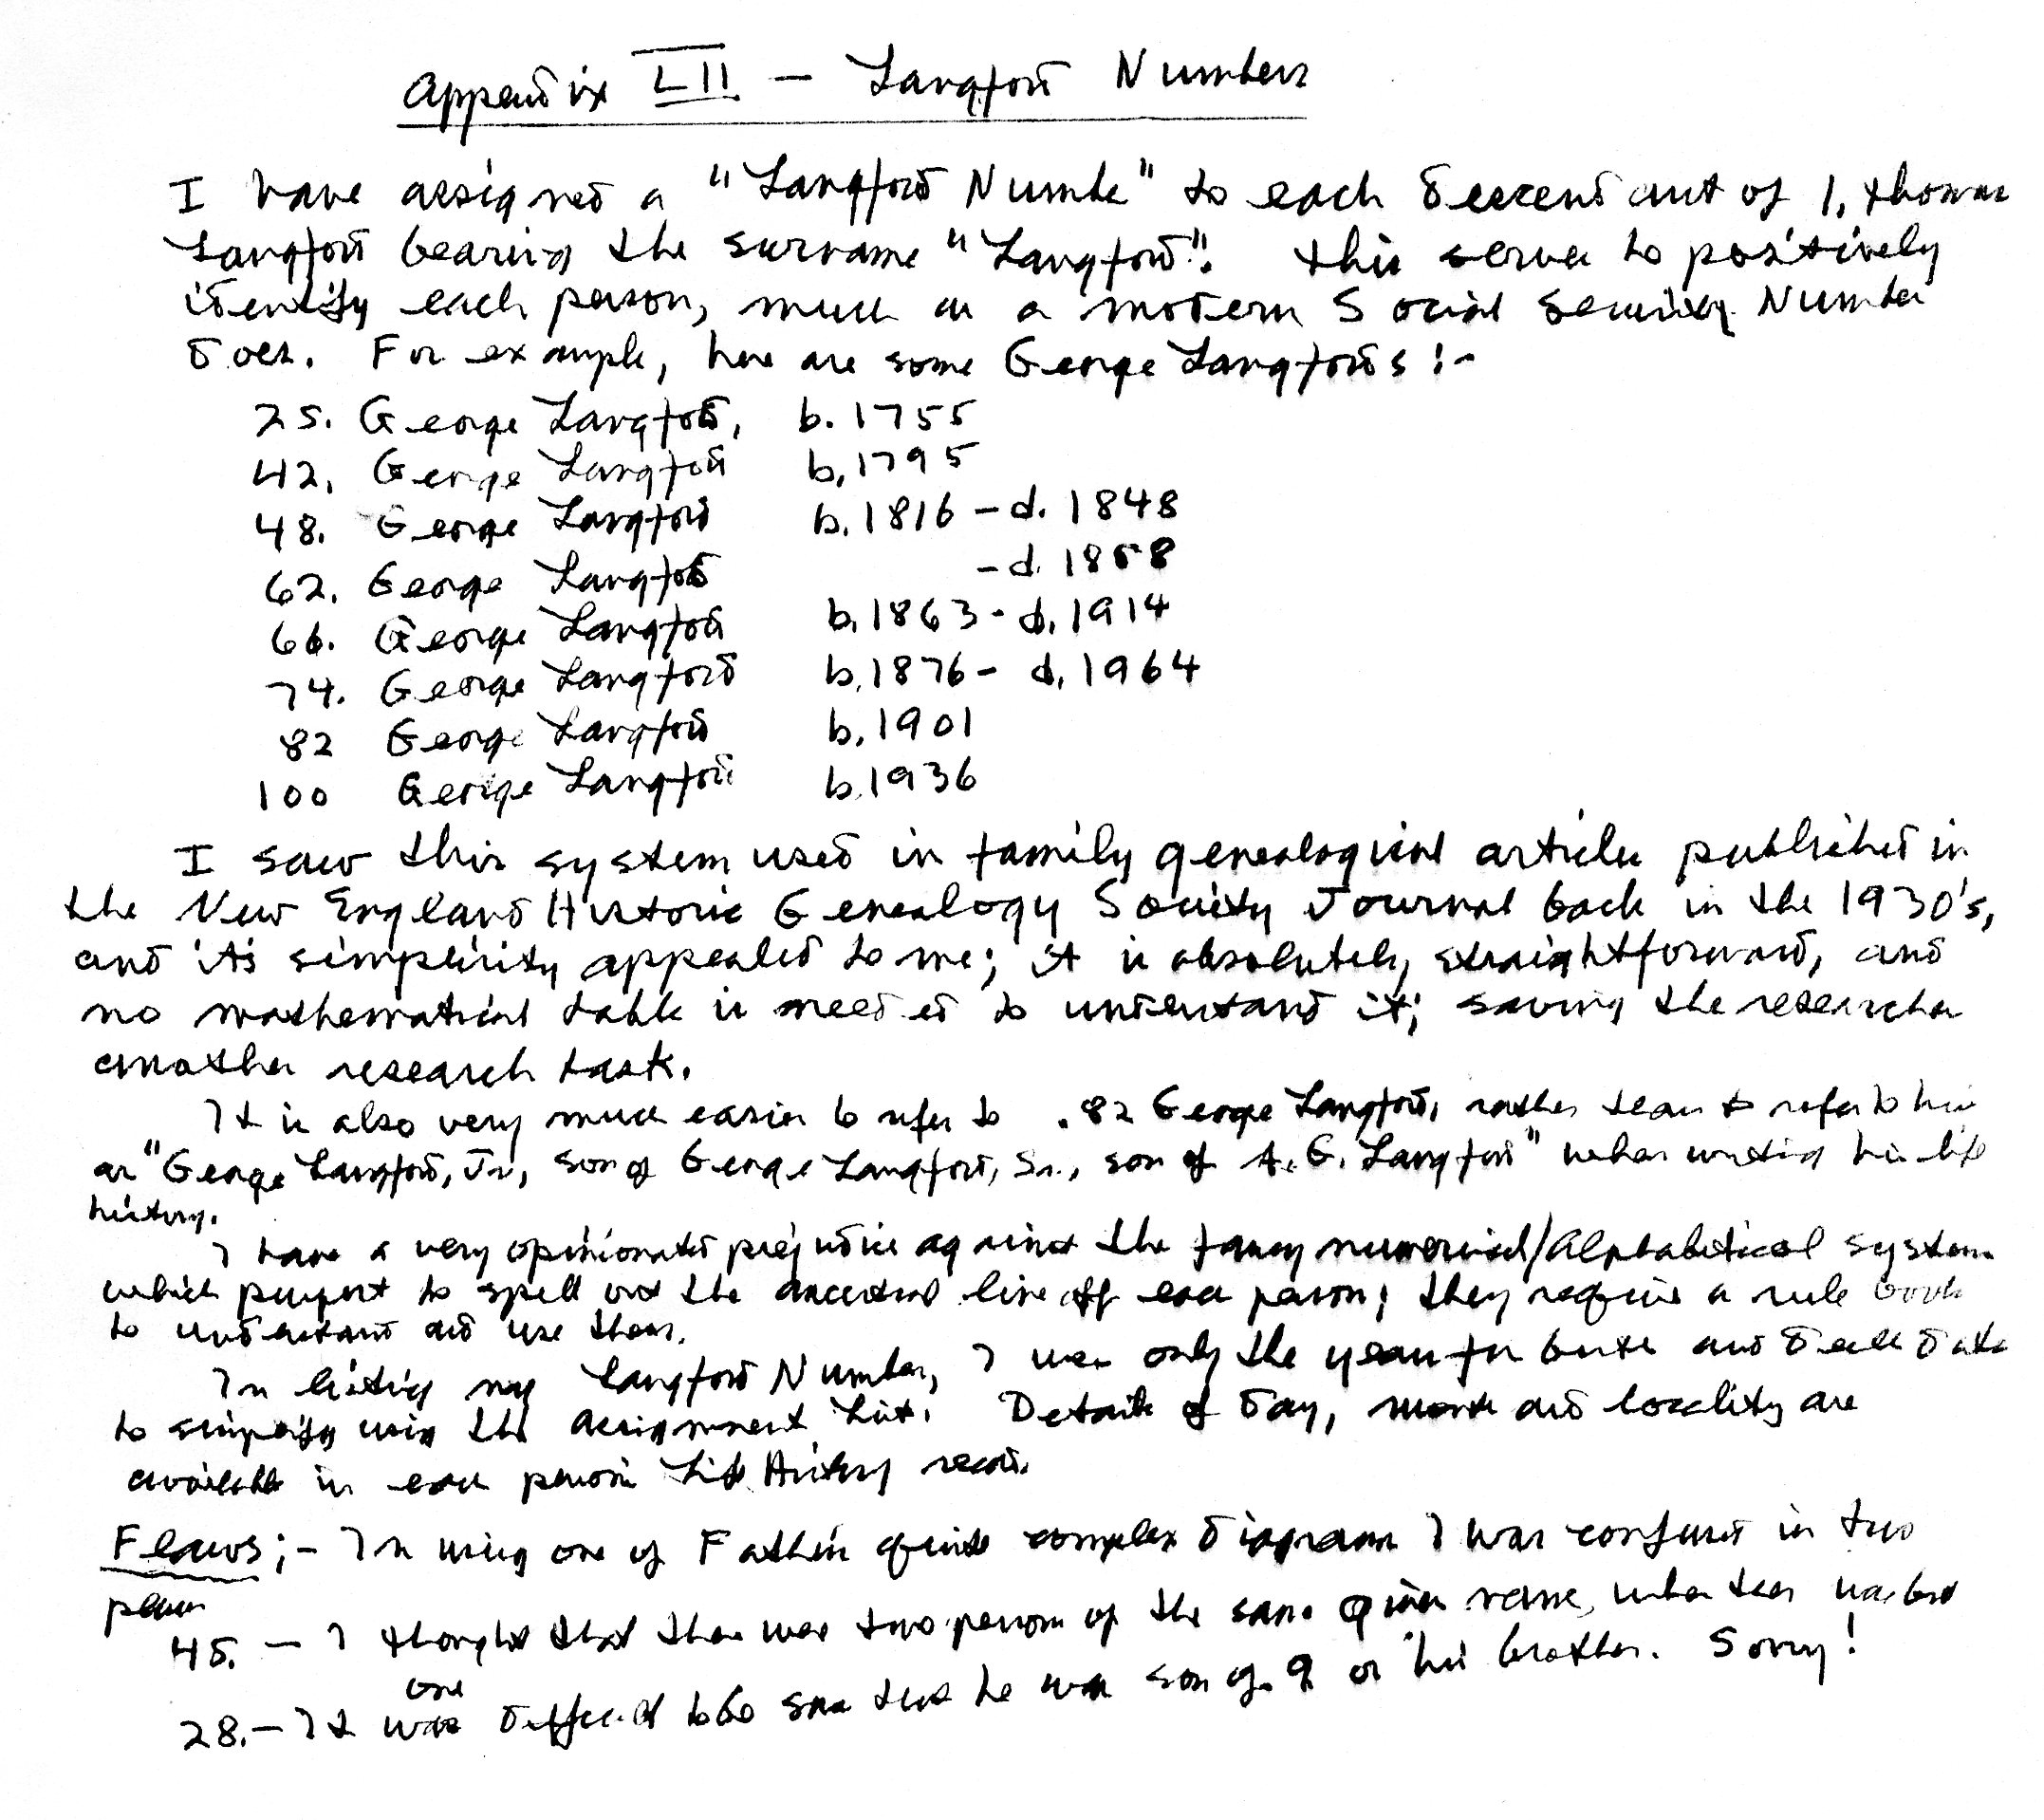 Appendix LII - Langford Numbers
I have assigned a "Langford Number" to each descendant of 1. Thomas
Langford bearing the surname "Langford". This serves to positively
identify each person, much as a modern Social Security Number
does. For example, here are some George Langfords:-
25. George Langford, b. 1755
42. George Langford b. 1795
48. George Langford b. 1816 - d. 1848
62. George Langford - d. 1858
66. George Langford b. 1863 - d. 1914
74. George Langford b. 1876 - d. 1964
82 George Langford b. 1901
100 George Langford b. 1936
I saw this system used in family genealogical articles published in
the New England Historic Genealogy Society Journal back in the 1930's,
and its simplicity appealed to me; it is absolutely straightforward, and
no mathematical table is needed to understand it; saving the researcher
another research task.
It is also very much easier to refer to .82 George Langford, rather than to refer to him
as "George Langford, Jr., son of George Langford, Sr., son of A.G. Langford" when writing his life
history.
I have a very opinionated prejudice against the fancy numerical/Alphabetical systems
which purport to spell out the ancestral line of each person; they require a rule book
to understand and use them.
In listing my Langford Numbers, I use only the years for birth and death dates
to simplify using the assignment list. Details of day, month and locality are
available in each person's Life History record.
Flaws;- In using one of Father's quite complex diagrams I was confused in two
places
45. - I thought that there were two persons of the same given name, when there was but one
28. - It was difficult to be sure that he was son of 9 or his brother. Sorry!